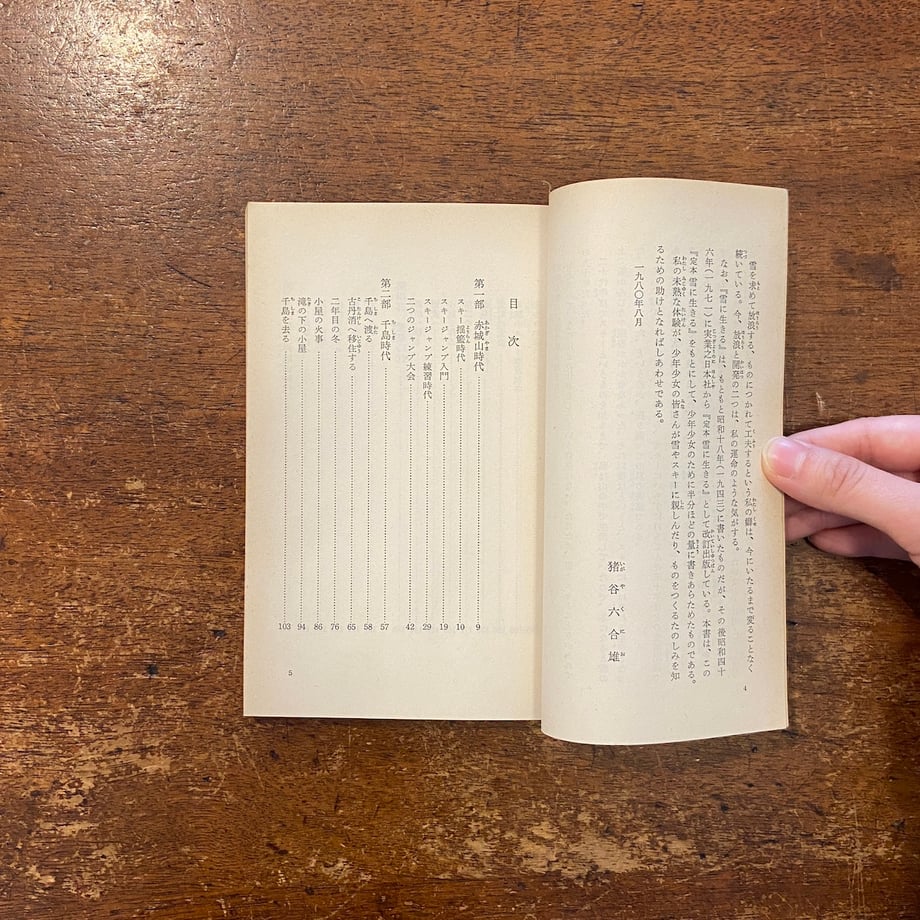 雪を求めて放浪する、ものにつかれて工夫するという私の癖は、今にいたるまで変ることなく
続いている。今、放浪と開発の二つは、私の運命のような気がする。
なお、『雪に生きる』は、もともと昭和十八年(一九四三)に書いたものだが、その後昭和四十
六年(一九七一)に実業之日本社から『定本 雪に生きる』として改訂出版している。本書は、この
『定本 雪に生きる』をもとにして、少年少女のために半分ほどの量に書きあらためたものである。
私の未熟な体験が、少年少女の皆さんが雪やスキーに親しんだり、ものをつくるたのしみを知
るための助けとなればしあわせである。
一九八〇年八月
猪谷六合雄
4
目次
第一部 赤城山時代 9
スキー揺籃時代 10
スキージャンプ入門 19
スキージャンプ練習時代 29
二つのジャンプ大会 42
第二部 千島時代 57
千島へ渡る 58
古丹消へ移住する 65
二年目の冬 76
小屋の火事 86
滝の下の小屋 94
千島を去る 103
5